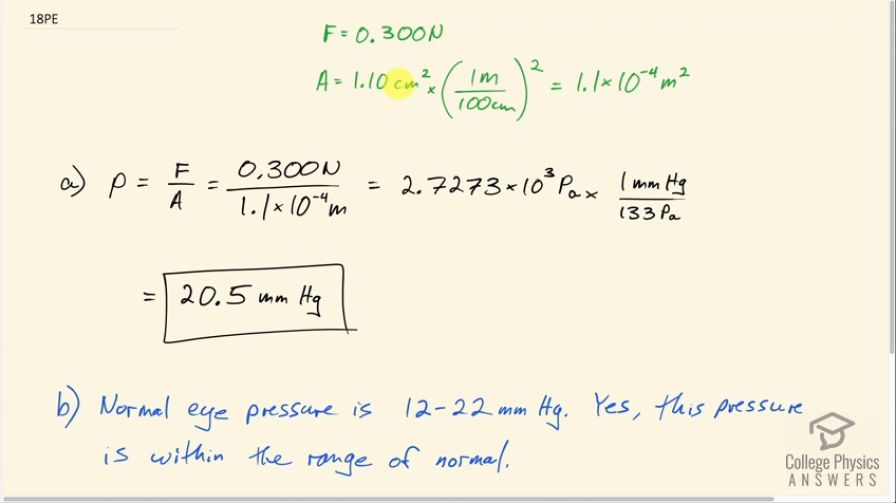 18PE
F = 0.300N
A = 1.10 cm² × (1m / 100cm)² = 1.1 × 10⁻⁴ m²
a) P = F/A = 0.300N / 1.1 × 10⁻⁴ m = 2.7273 × 10³ Pa × 1 mm Hg / 133 Pa
= 20.5 mm Hg
b) Normal eye pressure is 12-22 mm Hg. Yes, this pressure
is within the range of normal.
College Physics
ANSWERS